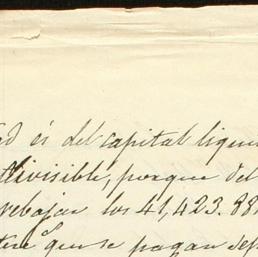 ad és del capital liqui
divisible, porque del
rebajar los 41,423.88
que se pagan dep